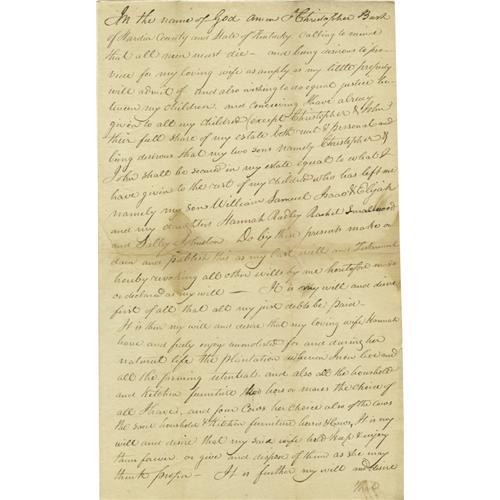 In the name of God amen I Christopher Bush
of Hardin County and State of Kentucky calling to mind
that all men must die — and being desirous to pro
vide for my loving wife as amply as my little property
will admit of and also wishing to do equal justice be
tween my children and conceiving I have already
given to all my children (except Christopher & John)
their full share of my estate both real & personal and
being desirous that my two sons namely Christopher &
John shall be secured in my estate equal to what I
have given to the rest of my children who has left me
namely my sons William Samuel Isaac & Elijah
and my daughters Hannah Radley Rachel Smallwood
and Sally Johnston Do by these presents make or
dain and publish this as my last will and Testament
hereby revoking all other wills by me heretofore made
or declared as my will — It is my will and desire
first of all that all my just debts be paid —
It is then my will and desire that my loving wife Hannah
have and freely enjoy unmolested for and during her
natural life the plantation whereon I now live and
all the farming utentials and also all the household
and kitchen furniture two horses or mares the choice of
all I have, and four Cows her choice also of the cows
the said household & kitchen furniture horses & Cows, It is my
will and desire that my said wife hold keep & enjoy
them forever or give and dispose of them as she may
think proper — It is further my will and desire
that